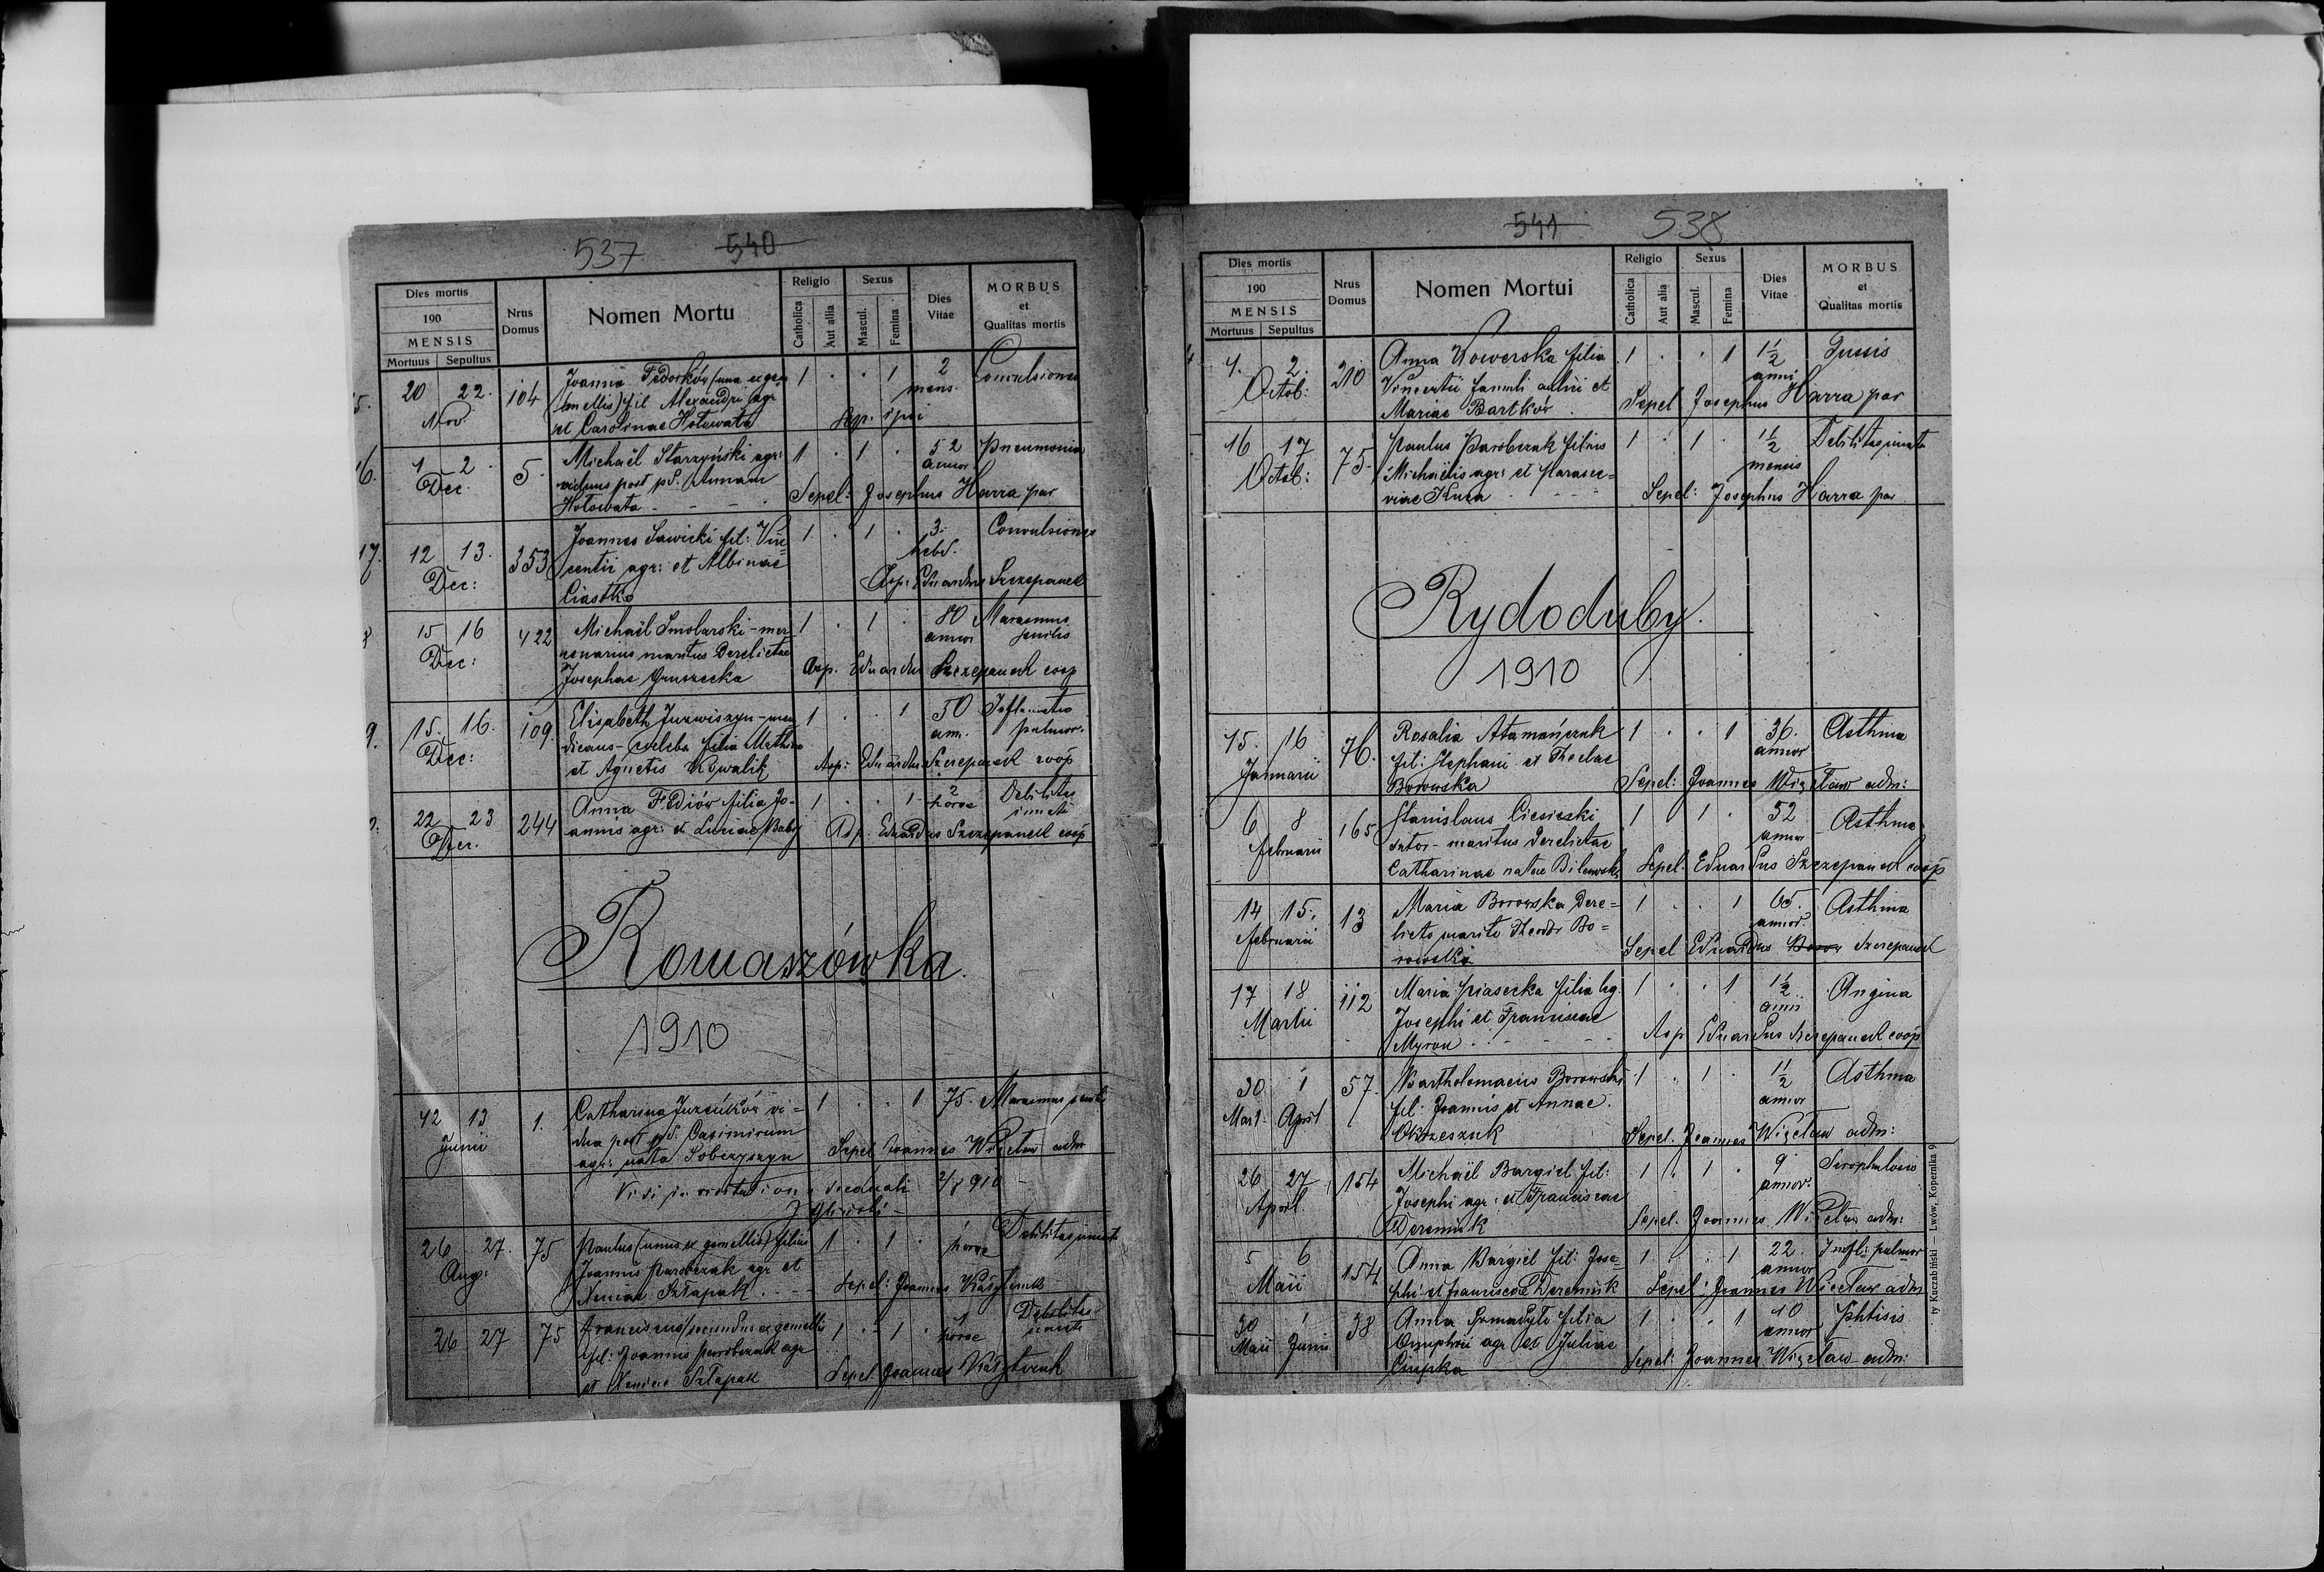 537 540
Dies mortis
190
MENSIS
Mortuus Sepultus
Nrus Domus
Nomen Mortu
Religio
Catholica Aut alia
Sexus
Mascul. Femina
Dies Vitae
MORBUS
et
Qualitas mortis
5. 20 22. 104 Joanna Fedorków (una ex ge- 1 . . 1 2 Convulsiones
Nov. (mellis) fil Alexandri agr mens.
et Carolinae Hołowata Sep. ipsi
16. 1 2. 5. Michaël Starzyński agr: 1 . 1 . 52 Pneumonia
Dec. viduus post p.d. Annam annor
Hołowata - - - Sepel: Josephus Harra par
17. 12 13. 353 Joannes Sawicki fil: Vin- 1 . 1 . 3. Convulsiones
Dec: centii agr: et Albinae hebd.
Ciastko Asp: Eduardus Szczepanek
8 15 16 422 Michaël Smolarski - mer 1 . 1 . 80 Marasmus
Dec: cenarius maritus derelictae annor senilis
Josephae Gruszecka Asp. Eduardus Szczepanek coop
9. 15. 16. 109. Elisabeth Juzwiszyn - men 1 . . 1 50 Inflamatio
Dec: dicans - coelebs filia Mathia ann. pulmor.
et Agnetis Kowalik Asp: Eduardus Szczepanek coop
22 23 244 Anna Fediów filia Jo- 1 . . 1 2 Debilitas
Dec. annis agr: et Luciae Baby horae innata
Asp. Eduardus Szczepanek coop
Romaszówka.
1910
12 13 1. Catharina Juzńków vi- 1 . . 1 75. Marasmus senilis
Junii dua post p.d. Casimirum
agr: nata Sobczyszyn Sepel Joannes Więcław adm
Vidi in visitatione decanali 2/8 910 -
26 27. 75 Paulus (unus ex gemellis) filius 1 . 1 . 1 Debilitas innata
Aug: Joannis Parobczak agr et horae
Xeniae Szłapak . - - Sepel: Joannes
26 27 75 Franciscus (secundus ex gemellis 1 . 1 . 1 Debilitas
fil: Joannis Parobczak agr horae innata
et Xeniae Szłapak Sepel Joannes
541 538
Dies mortis
190
MENSIS
Mortuus Sepultus
Nrus Domus
Nomen Mortui
Religio
Catholica Aut alia
Sexus
Mascul. Femina
Dies Vitae
MORBUS
et
Qualitas mortis
4 1. 2. 210 Anna Wowerska filia 1 . . 1 1 1/2 Tussis
Octob: Vincentii famuli aulici et anni
Mariae Bartków . Sepel Josephus Harra par
16 17 75. Paulus Parobczak filius 1 . 1 . 1 1/2 Debilitas innata
Octob: Michaëlis agr: et Parasce- mensis
viae Kuca - - - - Sepel: Josephus Harra par
Rydoduby.
1910
15. 16 76. Rosalia Atamańczuk 1 . . 1 36. Asthma
Januarii fil: Stephani et Theclae annor
Borowska Sepel: Joannes Więcław adm:
6 8 165 Stanislaus Ciesieski 1 . 1 . 52 Asthma
februarii sutor - maritus derelictae annor
Catharinae natae Bilewska Sepel. Eduardus Szczepanek coop
14 15. 13 Maria Borowska dere- 1 . . 1 65. Asthma
februarii licto marito Theodor Bo- annor.
rowski Sepel Eduardus Szczepanek
17 18 112 Maria Piasecka filia leg. 1 . . 1 1 1/2 Angina
Martii Josephi et Franciscae anni
Myron . - - - - Asp Eduardus Szczepanek coop
30 1 57. Bartholomaeus Borowski 1 . 1 . 1 1/2 Asthma
Mart. April fil: Joannis et Annae. annor
Okrzeszuk Sepel. Joannes Więcław adm:
26 27 154 Michaël Bargiel fil: 1 . 1 . 9 Scrophulosis
April. Josephi agr: et Franciscae annor.
Deremiuk Sepel. Joannes Więcław adm:
5 6 154 Anna Bargiel fil: Jose- 1 . . 1 22. Infl: pulmor
Maii phi et Franciscae Deremiuk annor
Sepel: Joannes Więcław adm
30 1 38 Anna Szmadyło filia 1 . . 1 10 Phtisis
Maii Junii Onuphrii agr et Juliae annor
Ciupka Sepel: Joannes Więcław adm:
ty Kuczabiński — Lwów, Kopernika 9